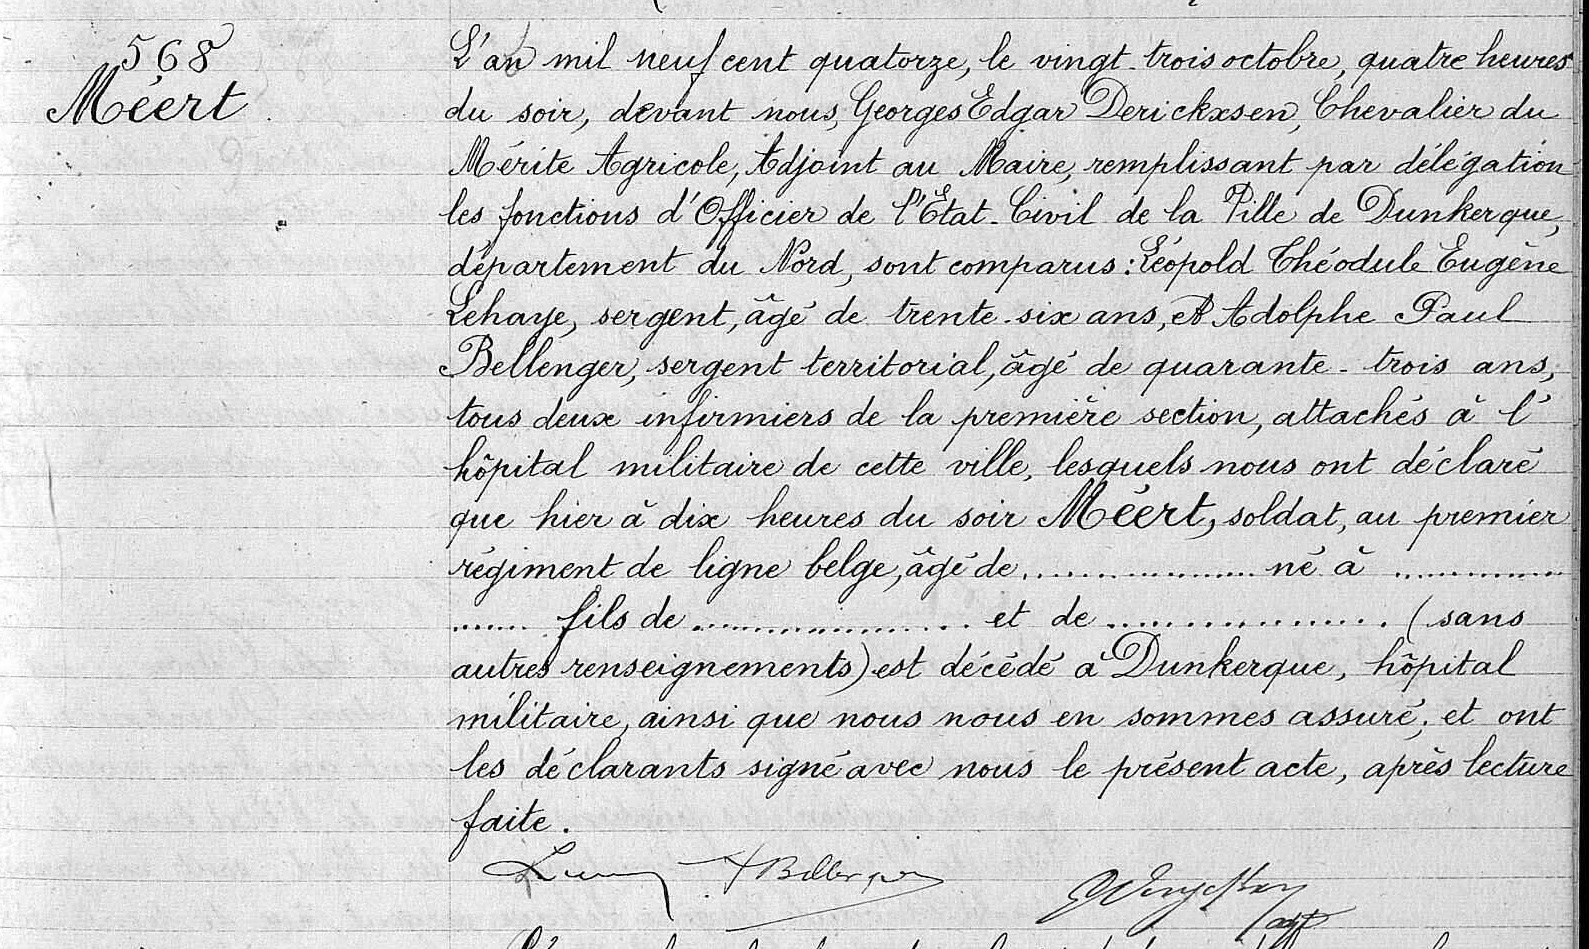 568
Méert
L'an mil neuf cent quatorze, le vingt-trois octobre, quatre heures
du soir, devant nous, Georges Edgar Derickxsen, Chevalier du
Mérite Agricole, Adjoint au Maire, remplissant par délégation
les fonctions d'Officier de l'Etat-Civil de la Ville de Dunkerque,
département du Nord, sont comparus : Léopold Théodule Eugène
Lehaye, sergent, âgé de trente-six ans, et Adolphe Paul
Bellenger, sergent territorial, âgé de quarante-trois ans,
tous deux infirmiers de la première section, attachés à l'
hôpital militaire de cette ville, lesquels nous ont déclaré
que hier à dix heures du soir Méert, soldat, au premier
régiment de ligne belge, âgé de .................... né à ..............
....... fils de ........................ et de ................. (sans
autres renseignements) est décédé à Dunkerque, hôpital
militaire, ainsi que nous nous en sommes assuré, et ont
les déclarants signé avec nous le présent acte, après lecture
faite.
ABellenger